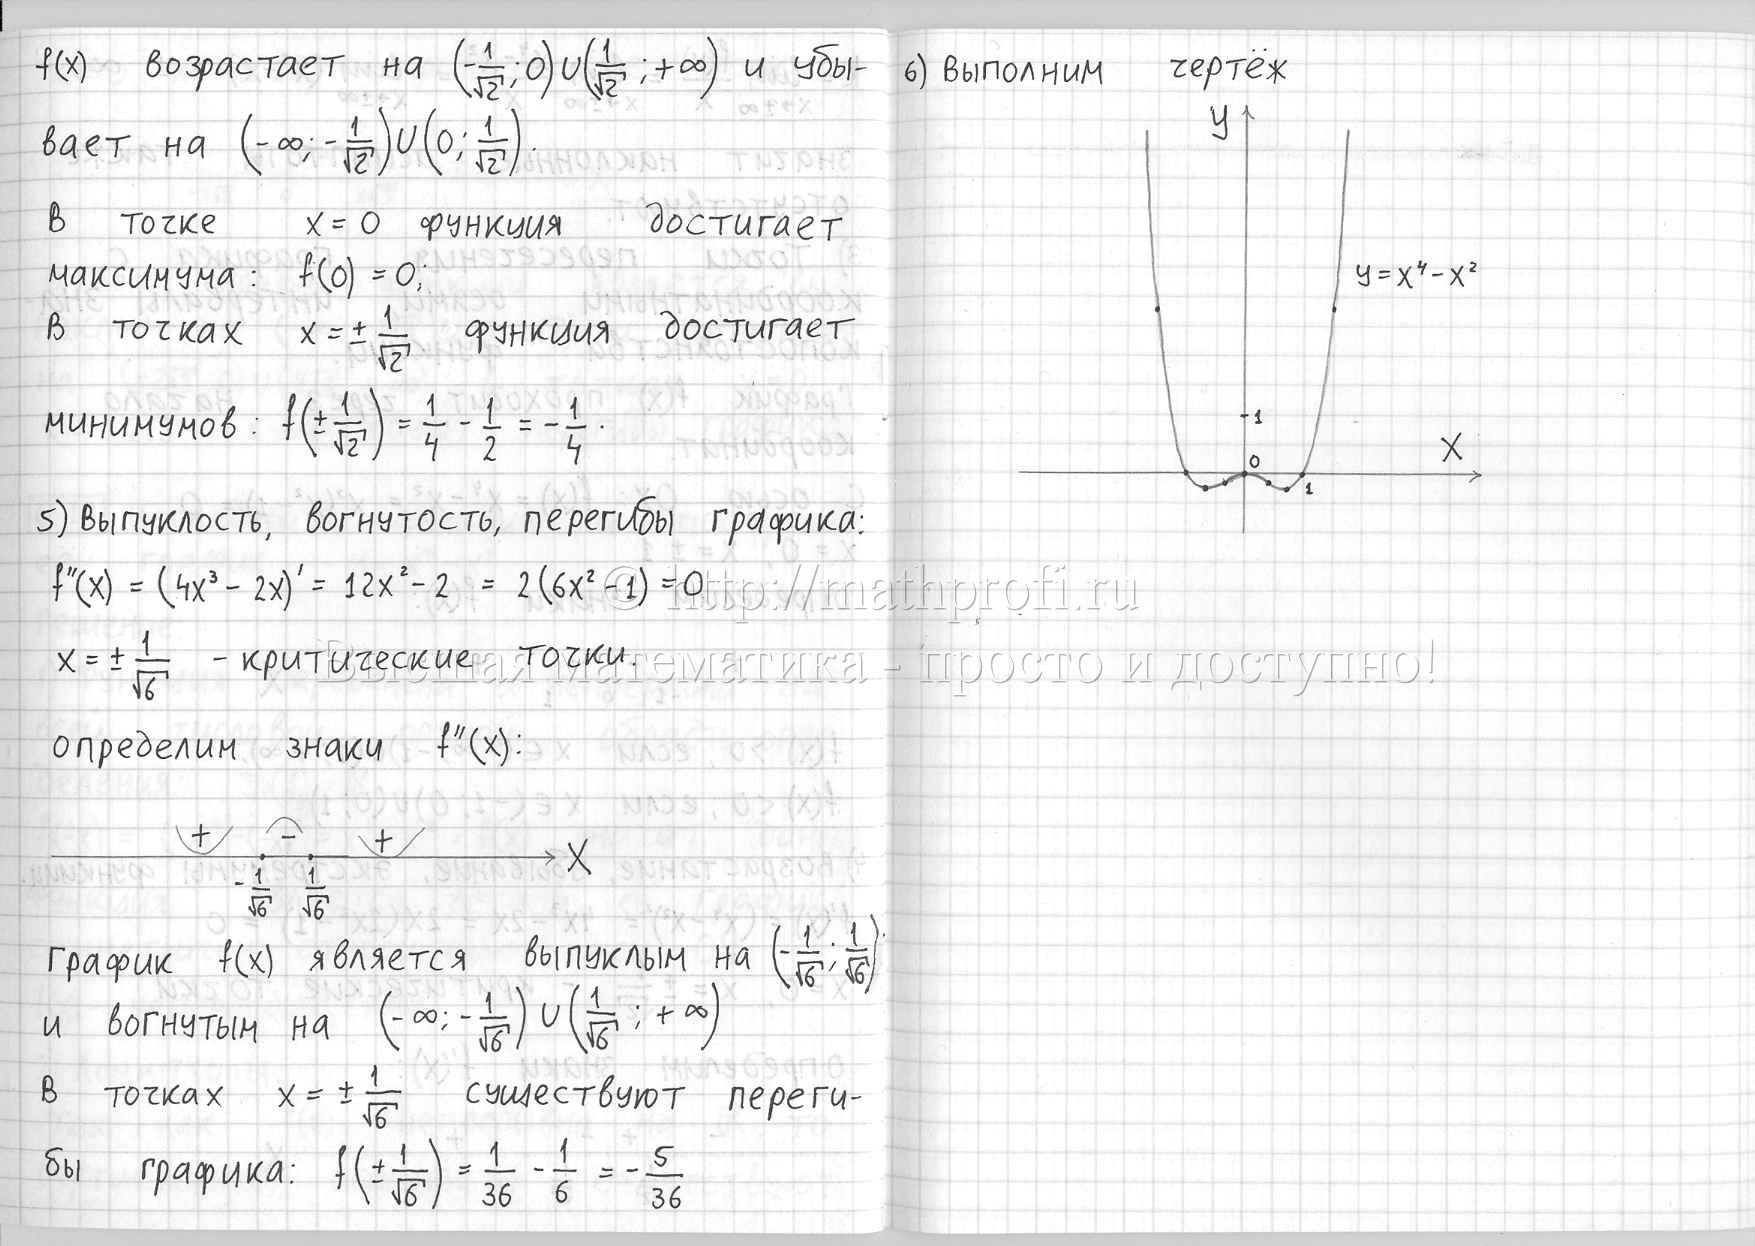 f(x) возрастает на (-1/√2; 0)∪(1/√2; +∞) и убы-
вает на (-∞; -1/√2)∪(0; 1/√2).
В точке x = 0 функция достигает
максимума: f(0) = 0;
В точках x = ± 1/√2 функция достигает
минимумов: f(± 1/√2) = 1/4 - 1/2 = - 1/4.
5) Выпуклость, вогнутость, перегибы графика:
f''(x) = (4x³ - 2x)' = 12x² - 2 = 2(6x² - 1) = 0
x = ± 1/√6 - критические точки.
определим знаки f''(x):
+ - +
X
-1/√6 1/√6
График f(x) является выпуклым на (-1/√6; 1/√6)
и вогнутым на (-∞; -1/√6)∪(1/√6; +∞)
В точках x = ± 1/√6 существуют переги-
бы графика: f(± 1/√6) = 1/36 - 1/6 = - 5/36
6) Выполним чертёж
y
y = x⁴ - x²
1
X
0
1
© http://mathprofi.ru
Высшая математика - просто и доступно!